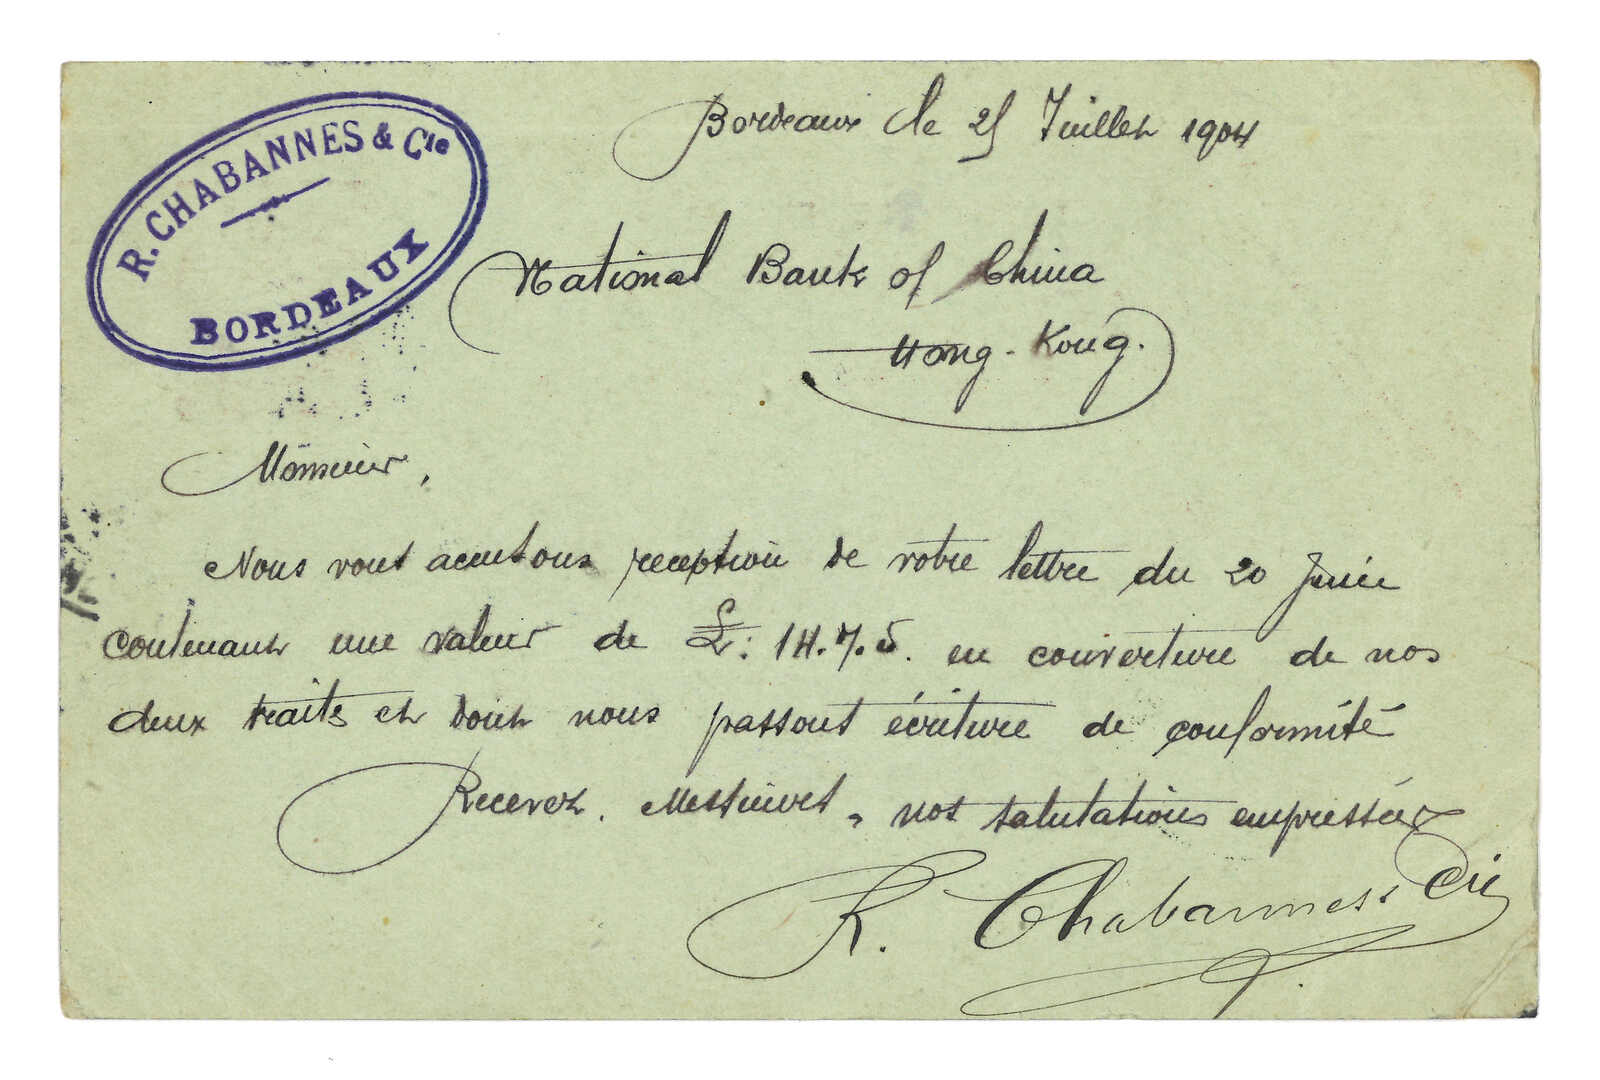 R. CHABANNES & Cie
BORDEAUX
Bordeaux le 25 Juillet 1904
National Bank of China
Hong-Kong.
Monsieur,
Nous vous accusons reception de votre lettre du 20 Juin
contenant une valeur de £: 14.7.5. en couverture de nos
deux traites et dont nous passons écriture de conformité
Recevez. Messieurs, nos salutations empressées
R. Chabannes & Cie